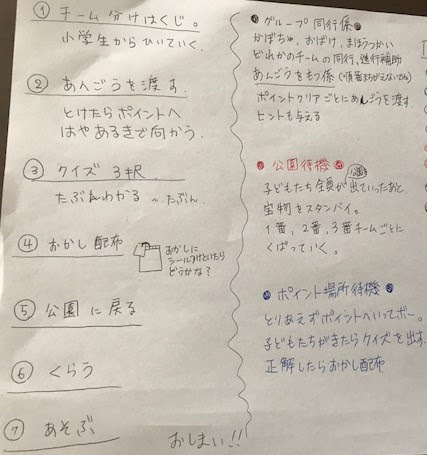 ① チーム分けはくじ。
小学生からひいていく。
② あんごうを渡す
とけたらポイントへ
はやあるきで向かう。
③ クイズ 3択
たぶんわかる 〜たぶん。
④ おかし配布
おかしに
シールつけといたら
どうかな?
⑤ 公園に戻る
⑥ くらう
⑦ あそぶ
おしまい!!
グループ同行係
かぼちゃ、おばけ、まほうつかい
どれかのチームの同行、進行補助
あんごうをもつ係
ポイントクリアごとにあんごうを渡す
ヒントも与える
公園待機
子どもたち全員が公園出ていったあと
宝物をスタンバイ。
1番、2番、3番チームごとに
くばっていく。
ポイント場所待機
とりあえずポイントへいってボー。
子どもたちがきたらクイズを出す。
正解したらおかし配布